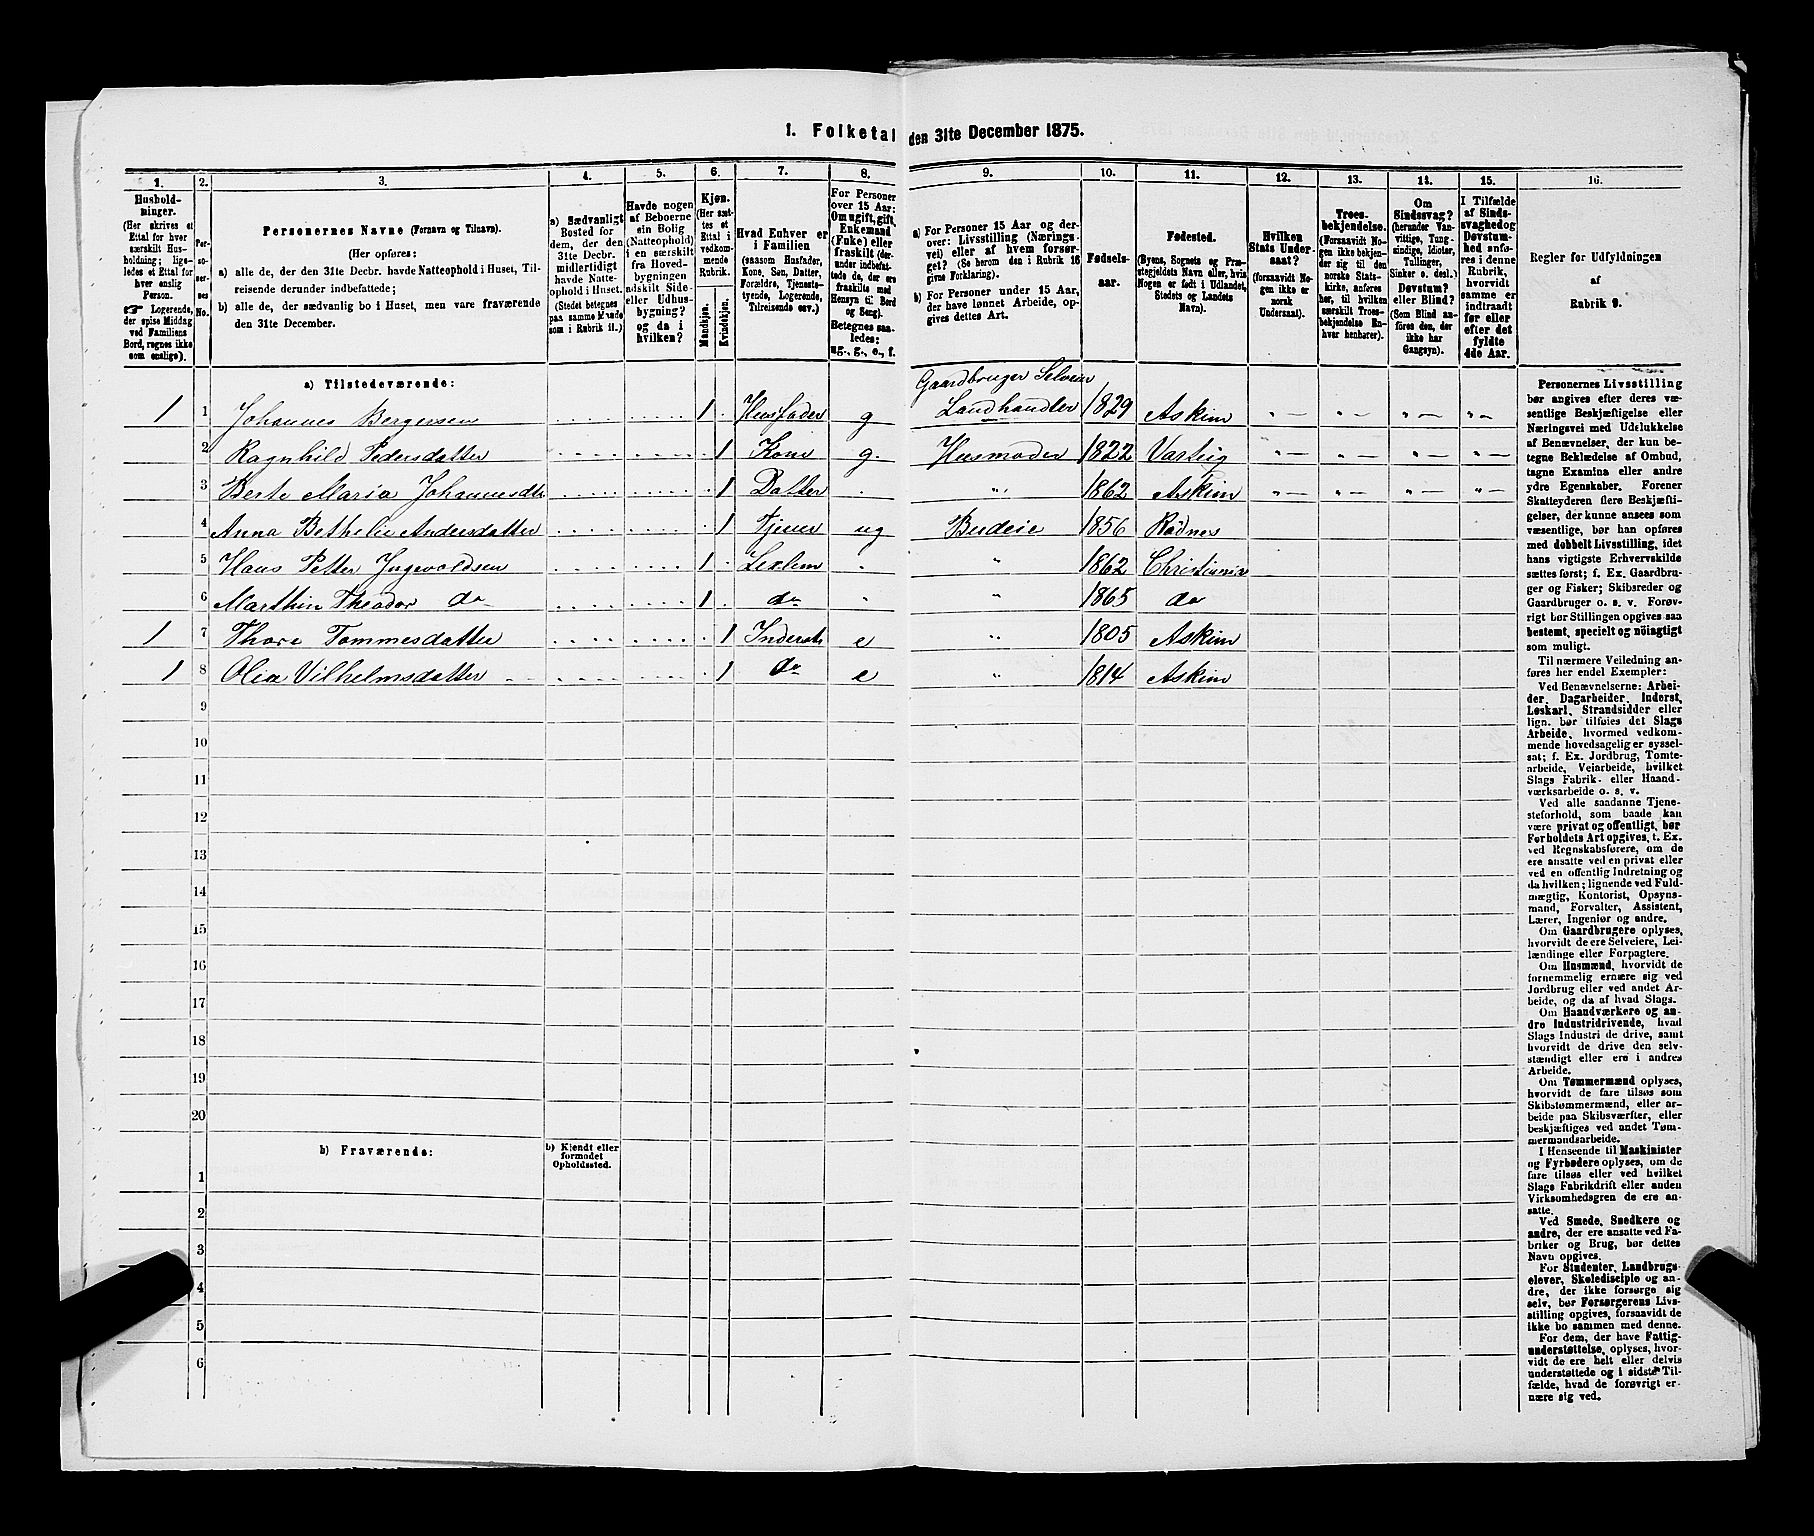 1. Folketal den 31te December 1875.
1. 2. 3. 4. 5. 6. 7. 8. 9. 10. 11. 12. 13. 14. 15. 16.
Hushold-
ninger.
(Her skrives et
Ettal for hver
særskilt Hus-
holdning; lige-
ledes et Ettal for
hver enslig
Person.
☞ Logerende,
der spise Middag
ved Familiens
Bord, regnes ikke
som enslige).
Per-
so-
ner-
nes
No.
Personernes Navne (Fornavn og Tilnavn).
(Her opføres:
a) alle de, der den 31te Decbr. havde Natteophold i Huset, Til-
reisende derunder indbefattede;
b) alle de, der sædvanlig bo i Huset, men vare fraværende
den 31te December.
a) Sædvanligt
Bosted for
dem, der den
31te Decbr.
midlertidigt
havde Natte-
ophold i Huset.
(Stedet betegnes
paa samme Maade
som i Rubrik 11.)
Havde nogen
af Beboerne
sin Bolig
(Natteophold)
i en særskilt
fra Hoved-
bygningen
adskilt Side-
eller Udhus-
bygning?
og da i
hvilken?
Kjøn.
(Her sæt-
tes et
Ettal i
vedkom-
mende
Rubrik.
Mandkjøn.
Kvindekjøn.
Hvad Enhver er
i Familien
(saasom Husfader,
Kone, Søn, Datter,
Forældre, Tjeneste-
tyende, Logerende,
Tilreisende osv.)
For Personer
over 15 Aar:
Om ugift, gift,
Enkemand
(Enke) eller
fraskilt (der-
under indbefat-
tede de, der ere
fraskilte med
Hensyn til Bord
og Seng).
Betegnes saa-
ledes:
ug., g., e., f.
a) For Personer 15 Aar og der-
over: Livsstilling (Nærings-
vei) eller af hvem forsør-
get? (Se herom den i Rubrik 16
givne Forklaring).
b) For Personer under 15 Aar,
der have lønnet Arbeide, op-
gives dettes Art.
Fødsels-
aar.
Fødested.
(Byens, Sognets og Præ-
stegjeldets Navn eller, hvis
Nogen er født i Udlandet,
Stedets og Landets
Navn).
Hvilken
Stats Under-
saat?
(forsaavidt No-
gen ikke er
norsk
Undersaat).
Troes-
bekjendelse.
(Forsaavidt No-
gen ikke bekjen-
der sig til den
norske Stats-
kirke, anføres
her, til hvilken
særskilt Troes-
bekjendelse En-
hver henhører).
Om
Sindssvag?
(herunder Van-
vittige, Tung-
sindige, Idioter,
Tullinger,
Sinker o. desl.)
Døvstum?
eller Blind?
(Som Blind an-
føres den, der
ikke har
Gangsyn).
I Tilfælde
af Sinds-
svaghed og
Døvstum-
hed anfø-
res i denne
Rubrik,
hvorvidt
samme er
indtraadt
før eller
efter det
fyldte
4de Aar.
Regler for Udfyldningen
af
Rubrik 9.
a) Tilstedeværende:
Gaardbruger Selveier
1 1 Johannes Bergersen 1 Husfader g Landhandler 1829 Askim " — " — " — " —
2 Ragnhild Pedersdatter 1 Kone g. Husmoder 1822 Varteig " — " — " — " —
3 Berte Maria Johannesdtr 1 Datter " " 1862 Askim " — " — " — " —
4 Anna Bethelie Andersdatter 1 Tjener ug Budeie 1856 Rødnes
5 Hans Petter Ingvoldsen 1 " " 1862 Christiania
6 Marthin Theodor do 1 do " " 1865 do
1 7 Thore Tommesdatter 1 Inderst e " 1805 Askim
1 8 Olea Vilhelmsdatter 1 do e " 1814 Askim
9
10
11
12
13
14
15
16
17
18
19
20
b) Fraværende:
b) Kjendt eller
formodet
Opholdssted.
1
2
3
4
5
6
Personernes Livsstilling
bør angives efter deres væ-
sentlige Beskjæftigelse eller
Næringsvei med Udelukkelse
af Benævnelser, der kun be-
tegne Beklædelse af Ombud,
tagne Examina eller andre
ydre Egenskaber. Forener
Skatteyderen flere Beskjæfti-
gelser, der kunne ansees som
væsentlige, bør han opføres
med dobbelt Livsstilling, idet
hans vigtigste Erhvervskilde
sættes først; f. Ex. Gaardbru-
ger og Fisker; Skibsreder og
Gaardbruger o. s. v. Forøv-
rigt bør Stillingen opgives saa
bestemt, specielt og nøiagtigt
som muligt.
Til nærmere Veiledning an-
føres her endel Exempler:
Ved Benævnelserne: Arbei-
der, Dagarbeider, Inderst,
Løskarl, Strandsidder eller
lign. bør tilføies det Slags
Arbeide, hvormed vedkom-
mende hovedsagelig er syssel-
sat; f. Ex. Jordbrug, Tomte-
arbeide, Veiarbeide, hvilket
Slags Fabrik- eller Haand-
værksarbeide o. s. v.
Ved alle saadanne Tjene-
steforhold, som baade kan
være privat og offentligt, bør
Forholdets Art opgives, t. Ex.
ved Regnskabsførere, om de
ere ansatte ved en privat eller
ved en offentlig Indretning og
da hvilken; lignende ved Fuld-
mægtig, Kontorist, Opsyns-
mand, Forvalter, Assistent,
Lærer, Ingeniør og andre.
Om Gaardbrugere oplyses,
hvorvidt de ere Selveiere, Lei-
lændinge eller Forpagtere.
Om Husmænd, hvorvidt de
fornemmelig ernære sig ved
Jordbrug eller ved andet Ar-
beide, og da af hvad Slags.
Om Haandværkere og an-
dre Industridrivende, hvad
Slags Industri de drive, samt
hvorvidt de drive den selv-
stændigt eller ere i andres
Arbeide.
Om Tømmermænd oplyses,
hvorvidt de fare tilsøs som
Skibstømmermænd, eller ar-
beide paa Skibsværfter, eller
beskjæftiges ved andet Tøm-
mermandsarbeide.
I Henseende til Maskinister
og Fyrbødere oplyses, om de
fare tilsøs eller ved hvilket
Slags Fabrikdrift eller anden
Virksomhedsgren de ere an-
satte.
Ved Smede, Snedkere og
andre, der ere ansatte ved Fa-
briker og Brug, bør dettes
Navn opgives.
For Studenter, Landbrugs-
elever, Skoledisciple og an-
dre, der ikke forsørge sig
selv, bør Forsørgerens Livs-
stilling opgives, forsaavidt de
ikke bo sammen med denne.
For dem, der have Fattig-
understøttelse, oplyses, hvor-
vidt de ere helt eller delvis
understøttede og i sidste Til-
fælde, hvad de forøvrigt er-
nære sig ved.